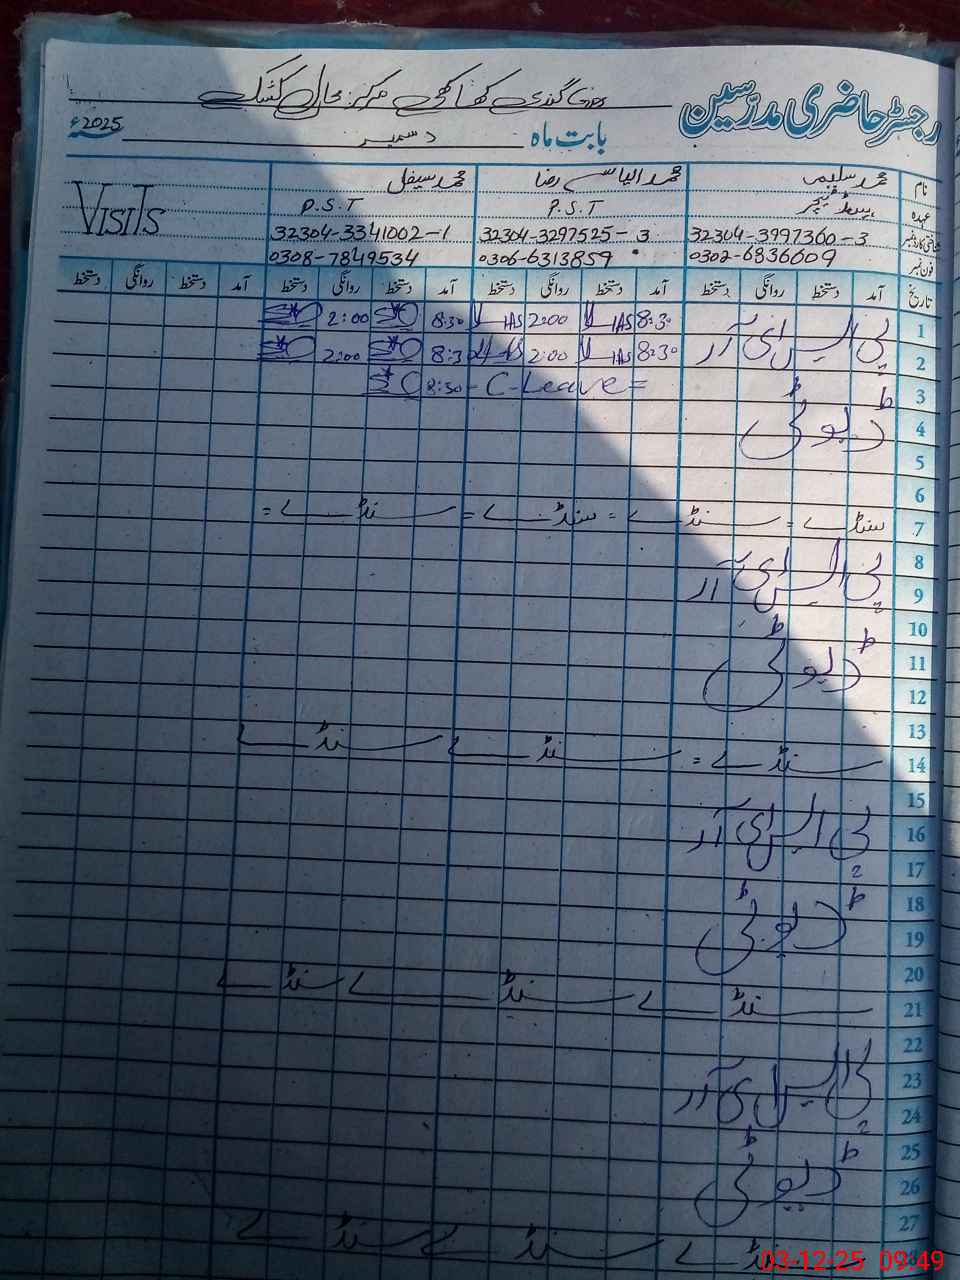 رجسٹر حاضری مدرسین
بابت ماہ دسمبر 2025ء
نام محمد سلیم محمد الیاس رضا محمد سیفل
عہدہ P.S.T P.S.T VISITS
شناختی کارڈ نمبر 32304-3997360-3 32304-3297525-3 32304-3341002-1
فون نمبر 0302-6836609 0306-6313859 0308-7849534
تاریخ آمد دستخط روانگی دستخط آمد دستخط روانگی دستخط آمد دستخط روانگی دستخط آمد دستخط روانگی دستخط
1 پی ایس ای آر 8:30 2:00 8:30 2:00
2 8:30 2:00 8:3 2:00
3 C-Leave= 8:30
4 ڈیوٹی
5
6
7 سنڈے = سنڈے = سنڈے = سنڈے =
8 پی ایس ای آر
9
10
11 ڈیوٹی
12
13
14 سنڈے = سنڈے سنڈے
15
16 پی ایس ای آر
17
18 ڈیوٹی
19
20
21 سنڈے سنڈے سنڈے
22
23 پی ایس ای آر
24
25 ڈیوٹی
26
27
سنڈے سنڈے سنڈے
03-12-25 09:49